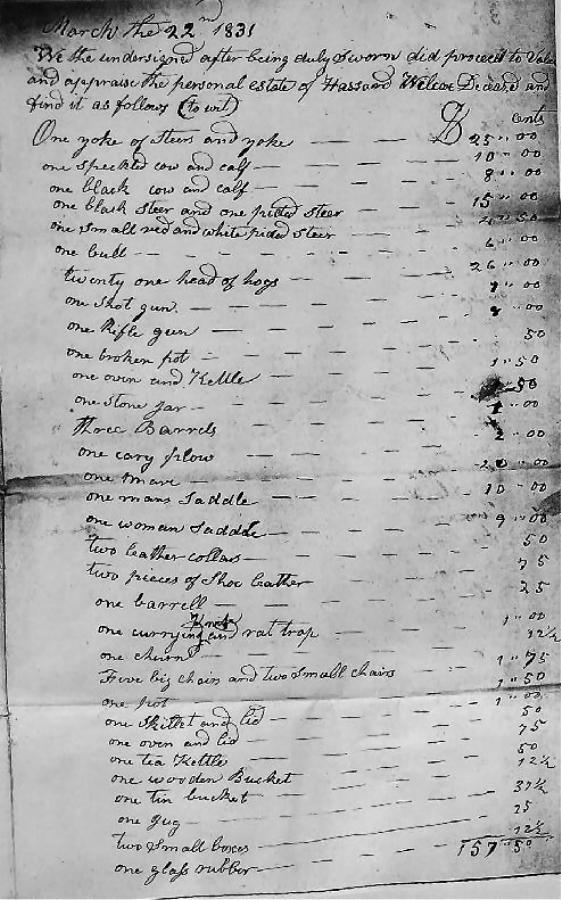 March the 22nd 1831
We the undersigned after being duly Sworn did proceed to Value
and appraise the personal estate of Hassard Wilcox Deceased and
find it as follows (to wit)
$ cents
One yoke of Steers and yoke 25"00
one speckled cow and calf 10"00
one black cow and calf 8"00
one black Steer and one pided Steer 15"00
one small red and white pided Steer 4"50
one bull 6"00
twenty one head of hogs 26"00
one Shot gun 7"00
one Rifle gun 8"00
one broken pot 50
one oven and Kettle 1"50
one Stone Jar 50
three Barrels 1"00
one cary plow 2"00
one mare 20"00
one mans Saddle 10"00
one woman Saddle 9"00
two leather collars 50
two pieces of Shoe leather 75
one barrell 25
one currying Knife and rat trap 1"00
one churn 12½
Five big chairs and two Small chairs 1"75
one pot 1"50
one Skillet and lid 1"00
one oven and lid 50
one tea Kettle 75
one wooden Bucket 50
one tin bucket 12½
one Jug 37½
two Small boxes 25
one glass rubber 12½
157"50